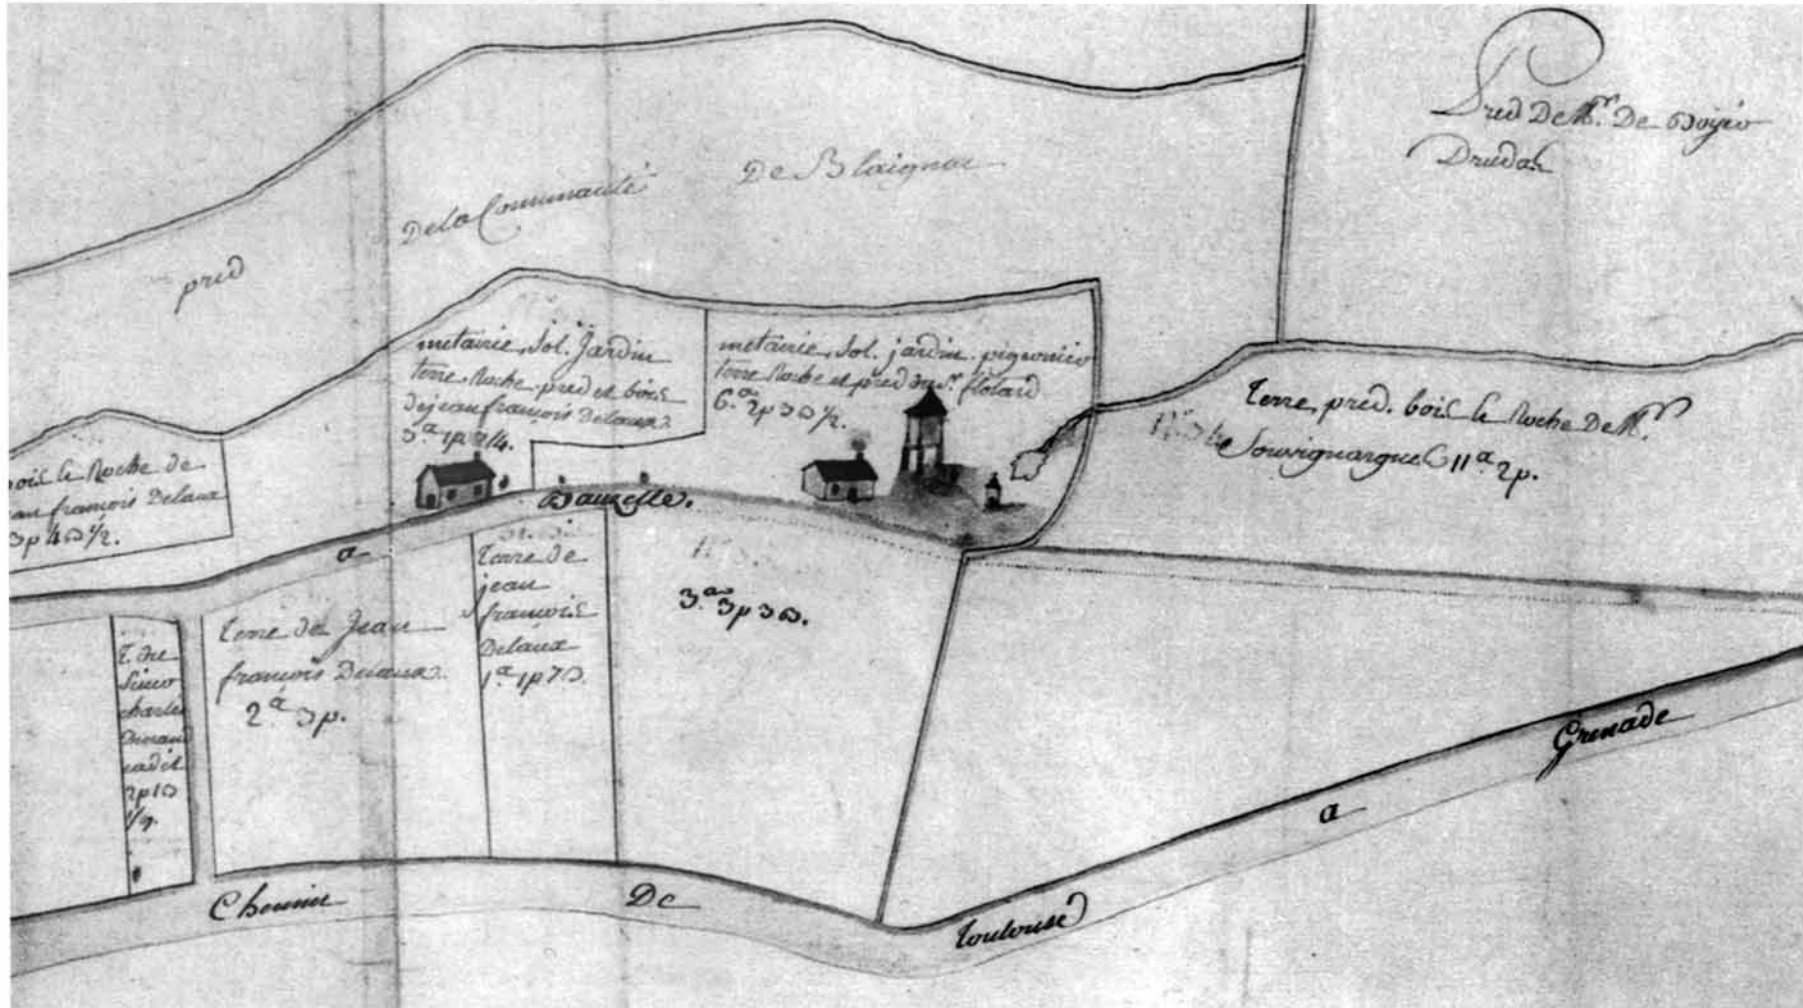 Pred De Mr. De
Drudas
De Blaignac
De la Communauté
pred
metairie, sol. Jardin
terre. Roche. pred et bois
de jean françois Delaux.
3.a 1p 2/4.
metairie, sol. jardin. pigeonier
terre Roche et pred du Sr. flotard
6.a 2p 3b 1/2.
terre, pred. bois & Roche De Mr.
de Souvignargues 11a 2p.
bois & Roche de
jean françois Delaux
3p 4b 1/2.
a
Bauzelle.
terre de
jean
françois
Delaux
1.a 1p 7b.
3.a 3p 3b.
terre de Jean
françois Delaux.
2.a 3p.
T. du
Sieur
charles
cadet
2p 1b
Chemin
De
toulouse
a
Grenade